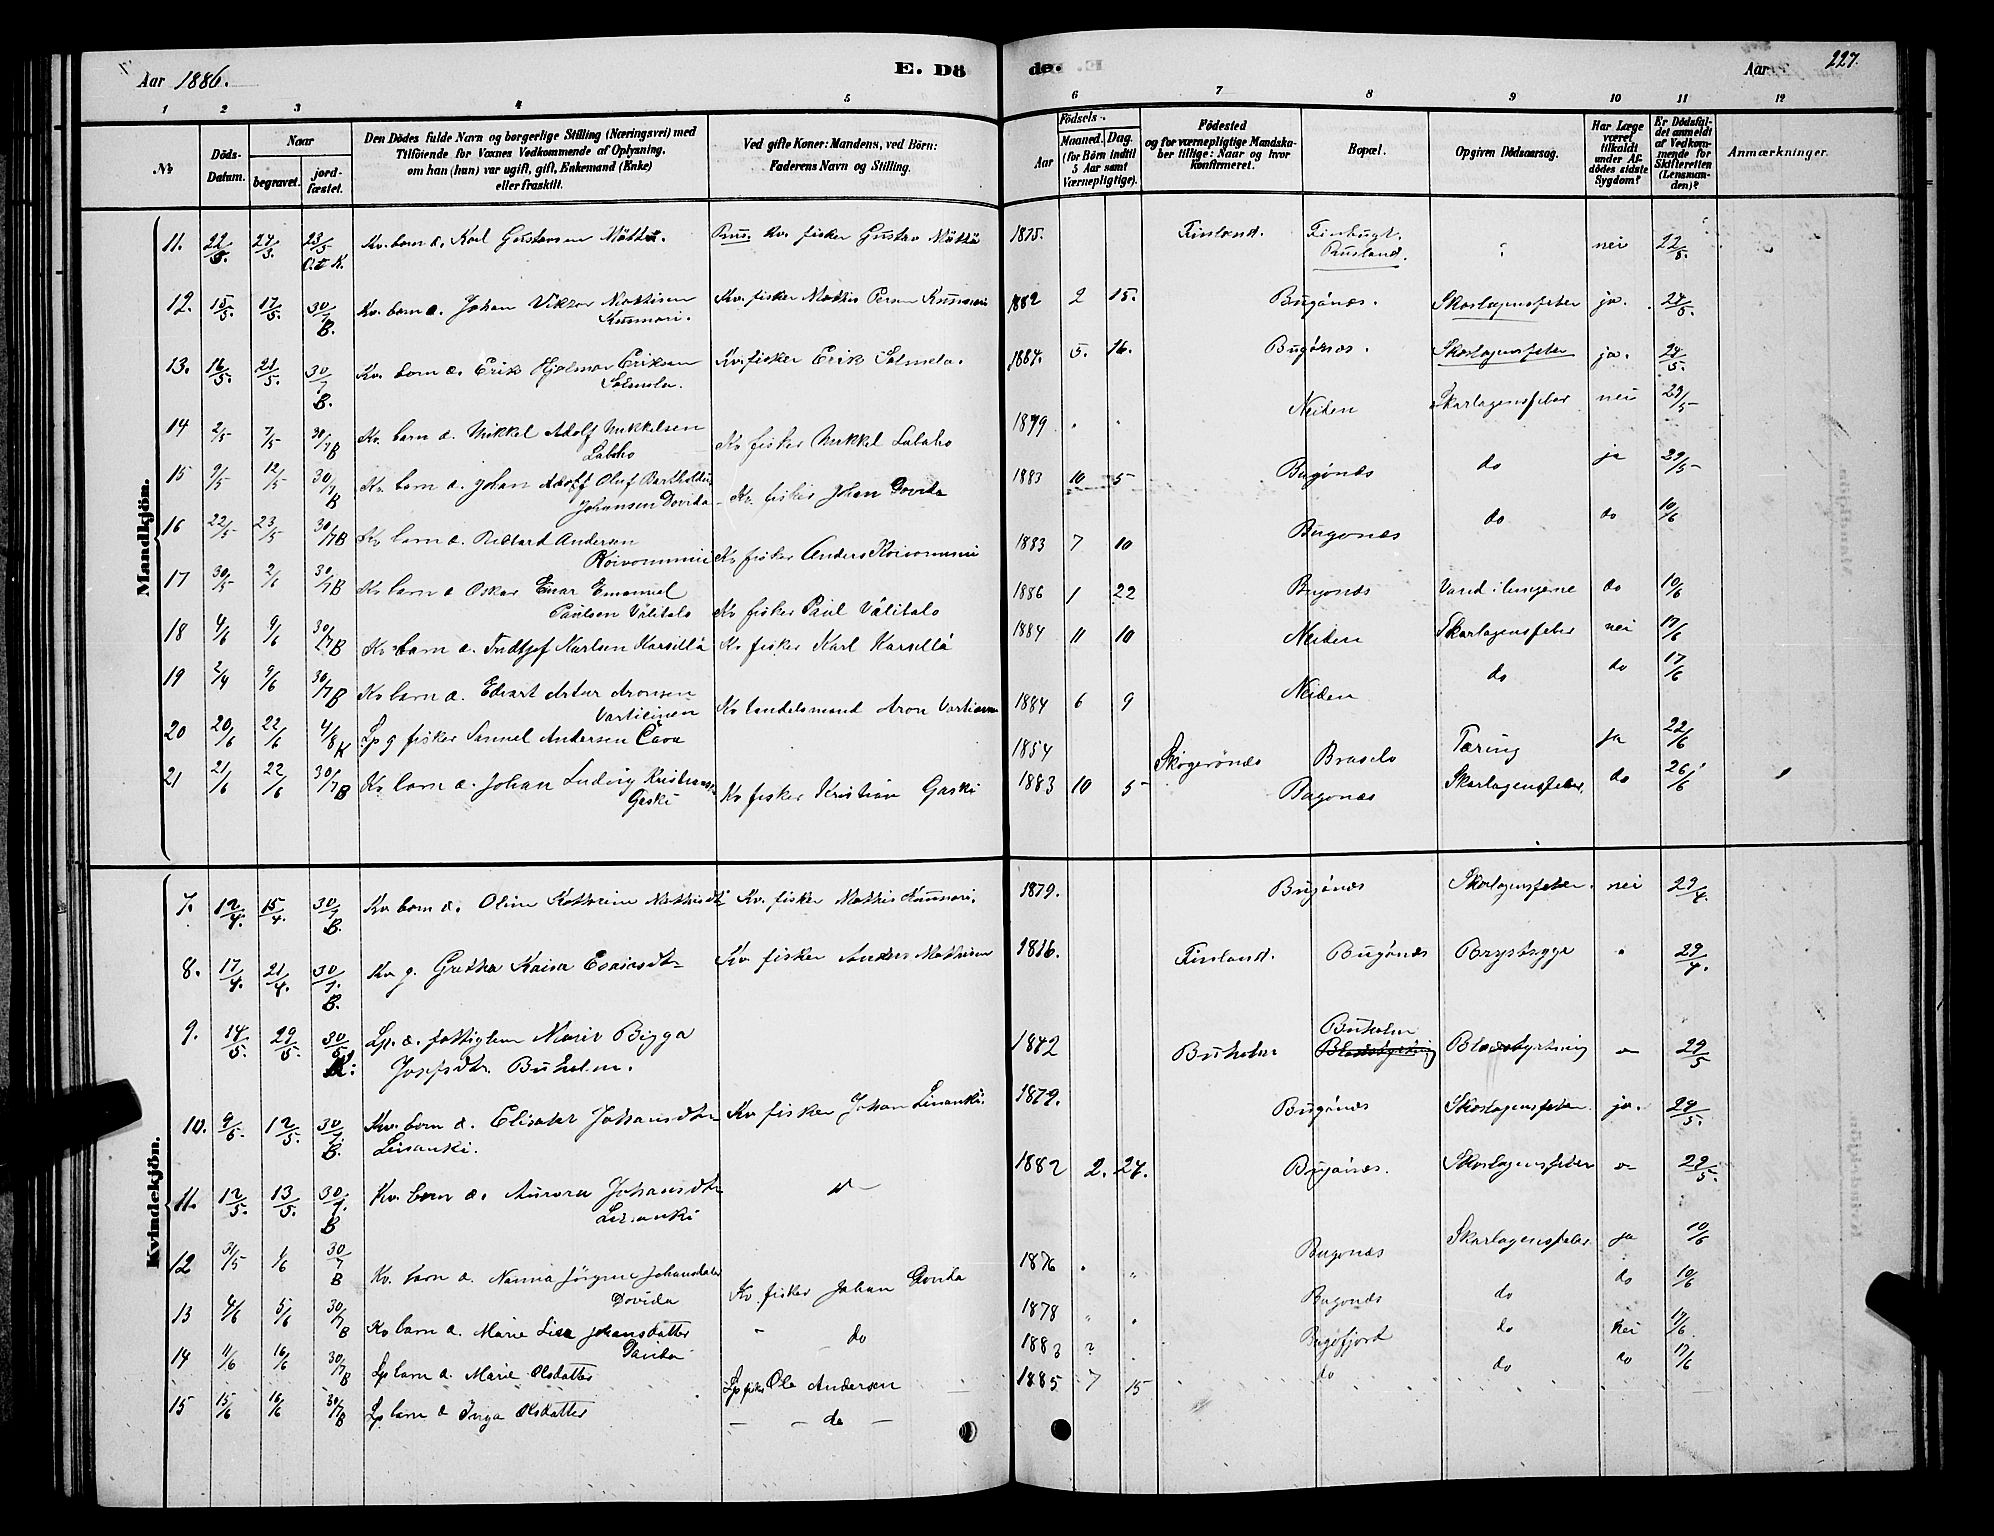 Aar 1886.
E. Dö
de.
Aar
227.
1 2 3 4 5 6 7 8 9 10 11 12
№
Döds-Datum.
Naar
begravet.
jord-fæstet.
Den Dödes fulde Navn og borgerlige Stilling (Næringsvei) med
Tilföiende for Voxnes Vedkommende af Oplysning,
om han (hun) var ugift, gift, Enkemand (Enke)
eller fraskilt.
Ved gifte Koner: Mandens, ved Börn:
Faderens Navn og Stilling.
Födsels-
Aar
Maaned. Dag.
(for Börn indtil
5 Aar samt
Værnepligtige).
Födested
og for værnepligtige Mandska-
ber tillige: Naar og hvor
konfirmeret.
Bopæl.
Opgiven Dödsaarsag.
Har Læge
været
tilkaldt
under Af-
dödes sidste
Sygdom?
Er Dödsfal-
det anmeldt
af Vedkom-
mende for
Skifteretten
(Lensman-
den)?
Anmærkninger.
Mandkjön.
11. 22/5 24/5 23/5 Kv. barn d. Karl Gustavsen Mättä. Rus. Kv. fisker Gustav Mättä 1875. Finland. Finbugt. Rusland. nei 22/5.
12. 15/5. 17/5. 30/7 B. Kv. barn d. Johan Viktor Mathisen Kunnari. Kv. fisker Mathis Persen Kunnari 1882 2 15. Bugönæs. Skarlagensfeber ja. 24/5.
13. 16/5. 21/5. 30/7 B. Kv. barn d. Erik Hjalmar Eriksen Salmela. Kv. fisker Erik Salmela. 1884. 5. 16. Bugönæs. Skarlagensfeber ja. 24/5.
14 2/5 7/5 30/7 B Kv. barn d. Mikkel Adolf Mikkelsen Labaho Kv fisker Mikkel Labaho 1879 Neiden Skarlagensfeber nei 29/5
15 9/5 12/5 30/7 B Kv. barn d. Johan Adolf Oluf Bartholdus Johansen Dovida Kv. fisker Johan Dovida 1883 10 5 Bugönæs do ja 29/5
16 22/5 23/5 30/7 B Kv barn d. Rikard Andersen Koivoniemi Kv fisker Anders Koivoniemi 1883 7 10 Bugonæs do do 10/6
17 30/5 2/6 30/7 B Kv barn d Oskar Einar Emanuel Paulsen Välitalo Kv fisker Paul Välitalo 1886 1 22 Bugonæs Vand i lungerne do 10/6
18 4/6 9/6 30/7 B Kv barn d. Fridtjof Karlsen Karsillä Kv fisker Karl Karsillä 1884 11 10 Neiden Skarlagensfeber nei 17/6
19 2/4 9/6 30/7 B Kv barn d. Edvart Artur Aronsen Vartiainen Kv landelsmand Aron Vartiainen 1884 6 9 Neiden do do 17/6
20 20/6 22/6 4/8 K Lp g fisker Samuel Andersen Cava 1854 Skogerönæs Brasela Tæring ja 22/6
21 21/6 22/6 30/7 B Kv barn d. Johan Ludvig Kristiansen Gaski Kv fisker Kristian Gaski 1883 10 5 Bugonæs Skarlagensfeber do 26/6
Kvindekjön.
7. 12/4. 15/4. 30/7 B. Kv barn d. Oline Kathrine Mathisdtr Kv. fisker Mathis Kunnari. 1879. Bugönæs Skarlagensfeber. nei 29/4.
8. 17/4. 21/4. 30/7. B. Kv g. Gretha Kaisa Esaiasdtr Kv fisker Anders Mathisen 1816. Finland. Bugönæs Brystsyge 29/4.
9. 14/5. 29/5. 30/5 Lp. d. fattiglem Marit Bigga Josefsdtr. Buholm. 1842 Buholm Buholm Blodstyrtning Blodstyrtning 29/5
10. 9/5. 12/5. 30/7. B. Kv. barn d. Elisabet Johansdtr Linanki. Kv fisker Johan Linanki. 1879. Bugönæs Skarlagensfeber ja. 24/5.
11. 12/5. 13/5. 30/7. B Kv. barn d. Aurora Johansdtr Linanki 1882 2. 24. Bugönæs. Skarlagensfeber 29/5.
12 31/5 1/6 30/7 B Kv. barn d. Nanna Jörgine Johansdatter Dovida Kv. fisker Johan Dovida 1876 Bugonæs Skarlagensfeber ja 10/6
13 4/6 5/6 30/7 B Kv barn d. Marie Lisa Johansdatter do 1878 Bugonæs do do 10/6
14 11/6 16/6 30/7 B Lp barn d. Marie Olsdatter Lp fisker Ole Andersen 1883 Bugöfjord do nei 17/6.
15 15/6 16/6 30/7 B Lp barn d Inga Olsdatter do 1885 7 15 do do do 17/6